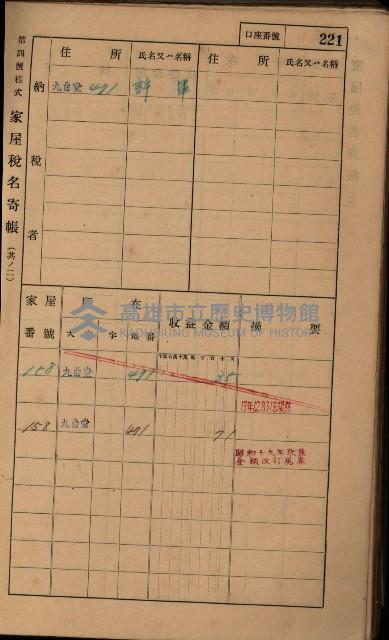 口座番號 221
第四號樣式 家屋稅名寄帳(其ノ二)
納稅者
住所 氏名又ハ名稱 住所 氏名又ハ名稱
九曲堂 491 許
家屋番號 所在 收益金額 摘要
大字 地番
158 九曲堂 491 35
158 九曲堂 491 71
昭和十九年收益
金額改訂現在
高雄市立歷史博物館
KAOHSIUNG MUSEUM OF HISTORY